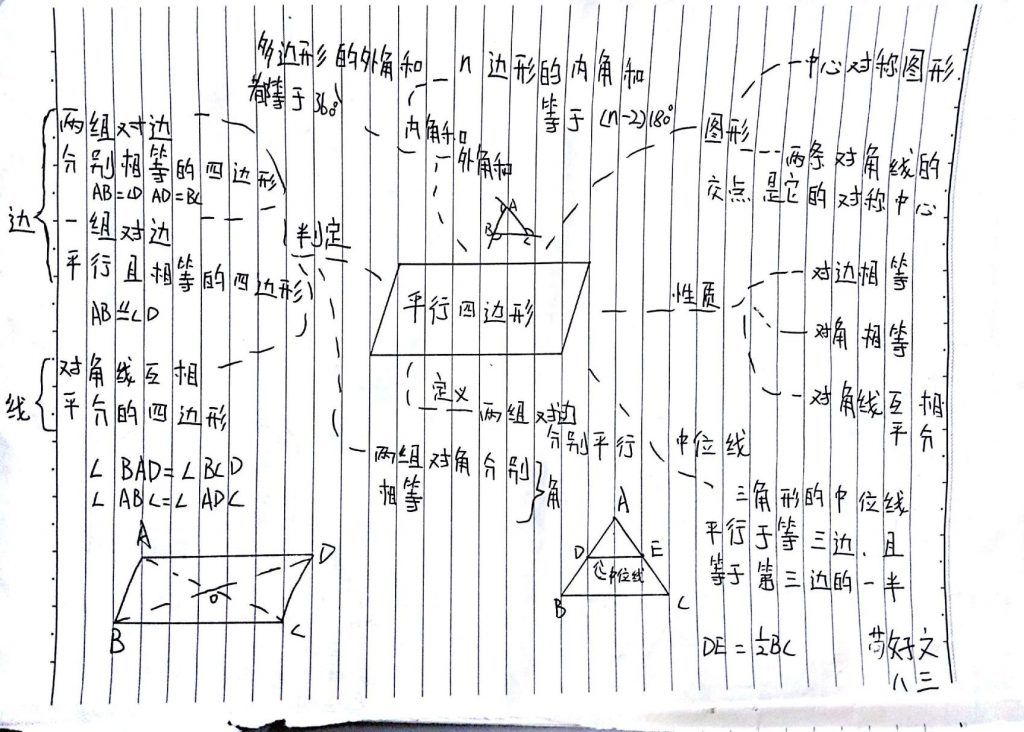 多边形的外角和
都等于360°
n边形的内角和
等于(n-2)180°
内角和
外角和
A
B
C
中心对称图形
图形
两条对角线的
交点是它的对称中心
边
两组对边
分别相等的四边形
AB=CD AD=BC
一组对边
平行且相等的四边形
AB⫽CD
判定
平行四边形
性质
对边相等
对角相等
对角线互相
平分
线
对角线互相
平分的四边形
定义
两组对边
分别平行
两组对角分别
相等
角
∠BAD=∠BCD
∠ABC=∠ADC
A
D
O
B
C
中位线
三角形的中位线
平行于等三边.且
等于第三边的一半
A
D
E
中位线
B
C
DE=½BC
好文
八三